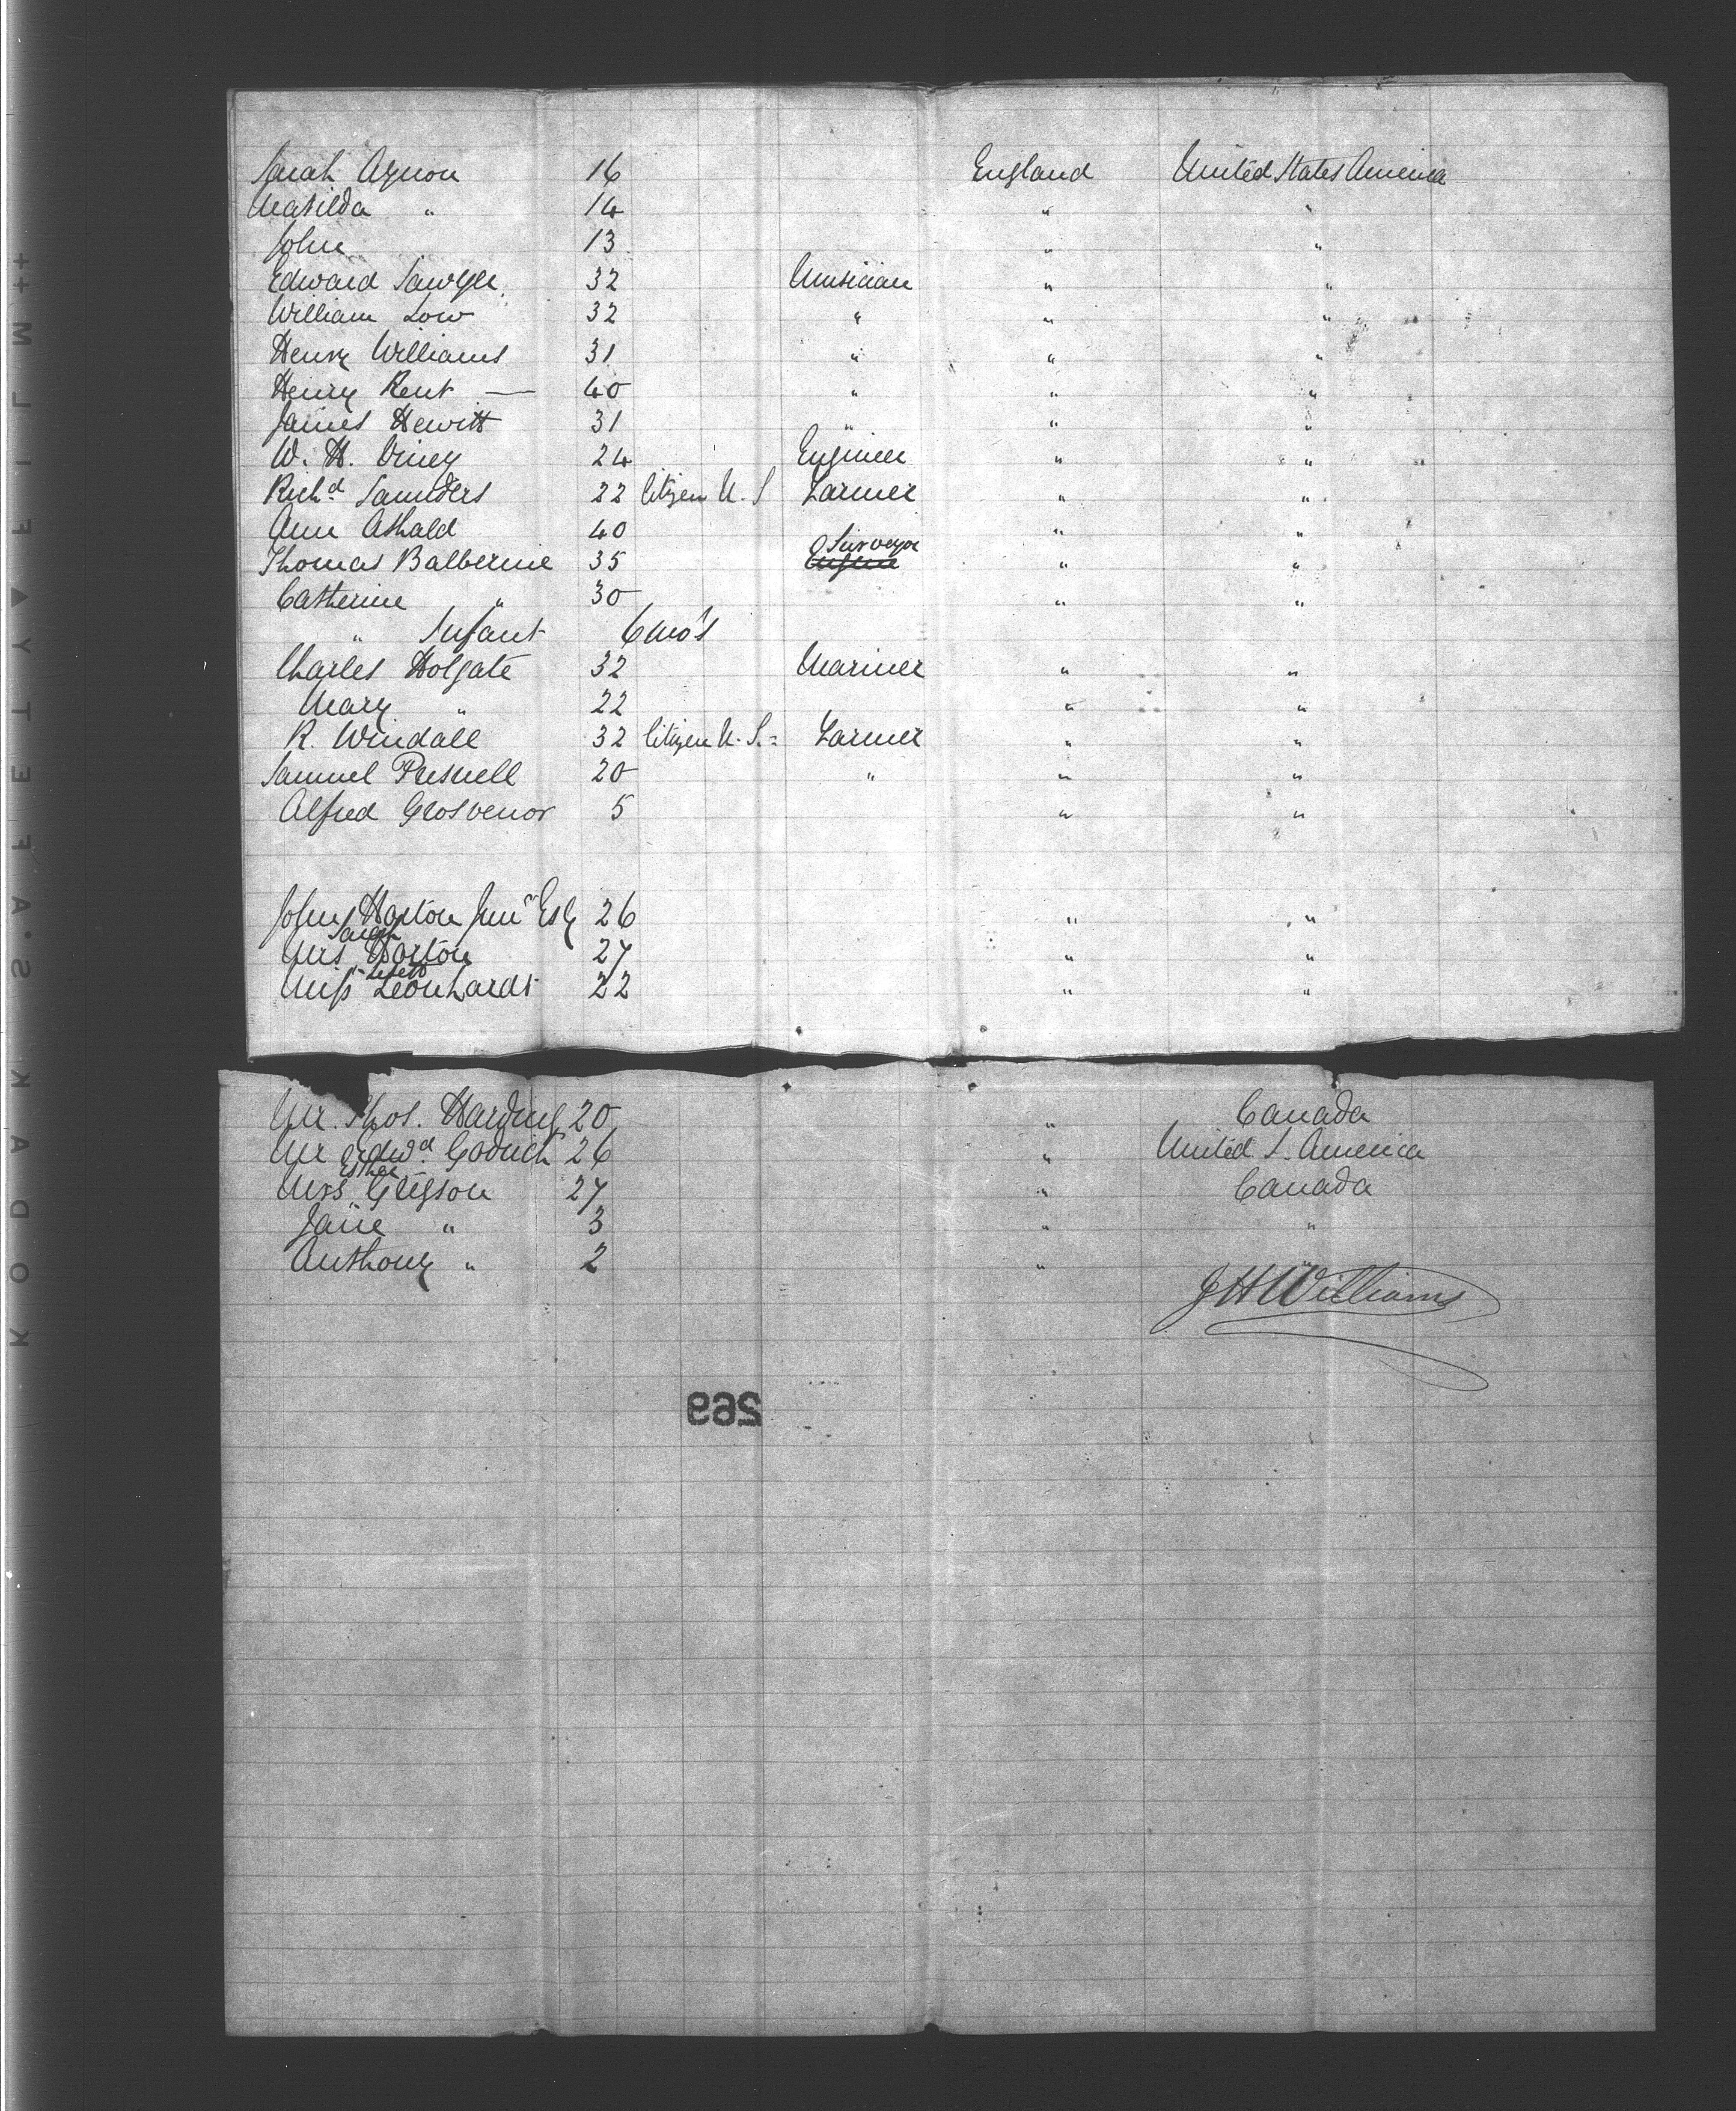 Sarah Aynon 16 England United States America
Matilda " 14 " "
John 13 " "
Edward Sawyle 32 Musician " "
William Low 32 " " "
Henry Williams 31 " " "
Henry Kent — 40 " " "
James Hewitt 31 " " "
W. H. Viney 24 Engineer " "
Richd Saunders 22 Citizen U. S Farmer " "
Ann Athald 40 " "
Surveyor
Thomas Balbernie 35 " "
Catherine " 30 " "
" Infant 6 mo's
Charles Holgate 32 Mariner " "
Mary " 22 " "
R. Windall 32 Citizen U. S. = Farmer " "
Samuel Presnell 20 " " "
Alfred Grosvenor 5 " "
John Horton Junr Esq 26 " "
Sarah
Mrs Horton 27 " "
Miss Leonhardt 22 " "
Mr. Thos. Harding 20 " Canada
Mr Edwd. Godrich 26 " United S. America
Esther
Mrs Gregson 27 " Canada
Jane " 3 " "
Anthony " 2 " "
J H Williams
269
KODAK SAFETY FILM